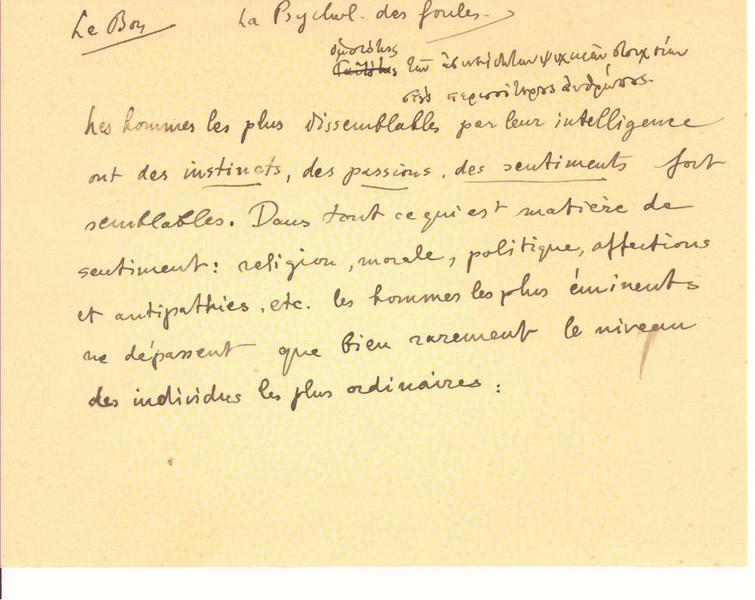 Le Bon La Psychol. des foules.
ὁμοιότης
τῶν ἀσυνειδήτων ψυχικῶν στοιχείων
στοὺς περισσοτέρους ἀνθρώπους.
Les hommes les plus dissemblables par leur intelligence
ont des instincts, des passions, des sentiments fort
semblables. Dans tout ce qui est matière de
sentiment: religion, morale, politique, affections
et antipathies, etc. les hommes les plus éminents
ne dépassent que bien rarement le niveau
des individus les plus ordinaires: